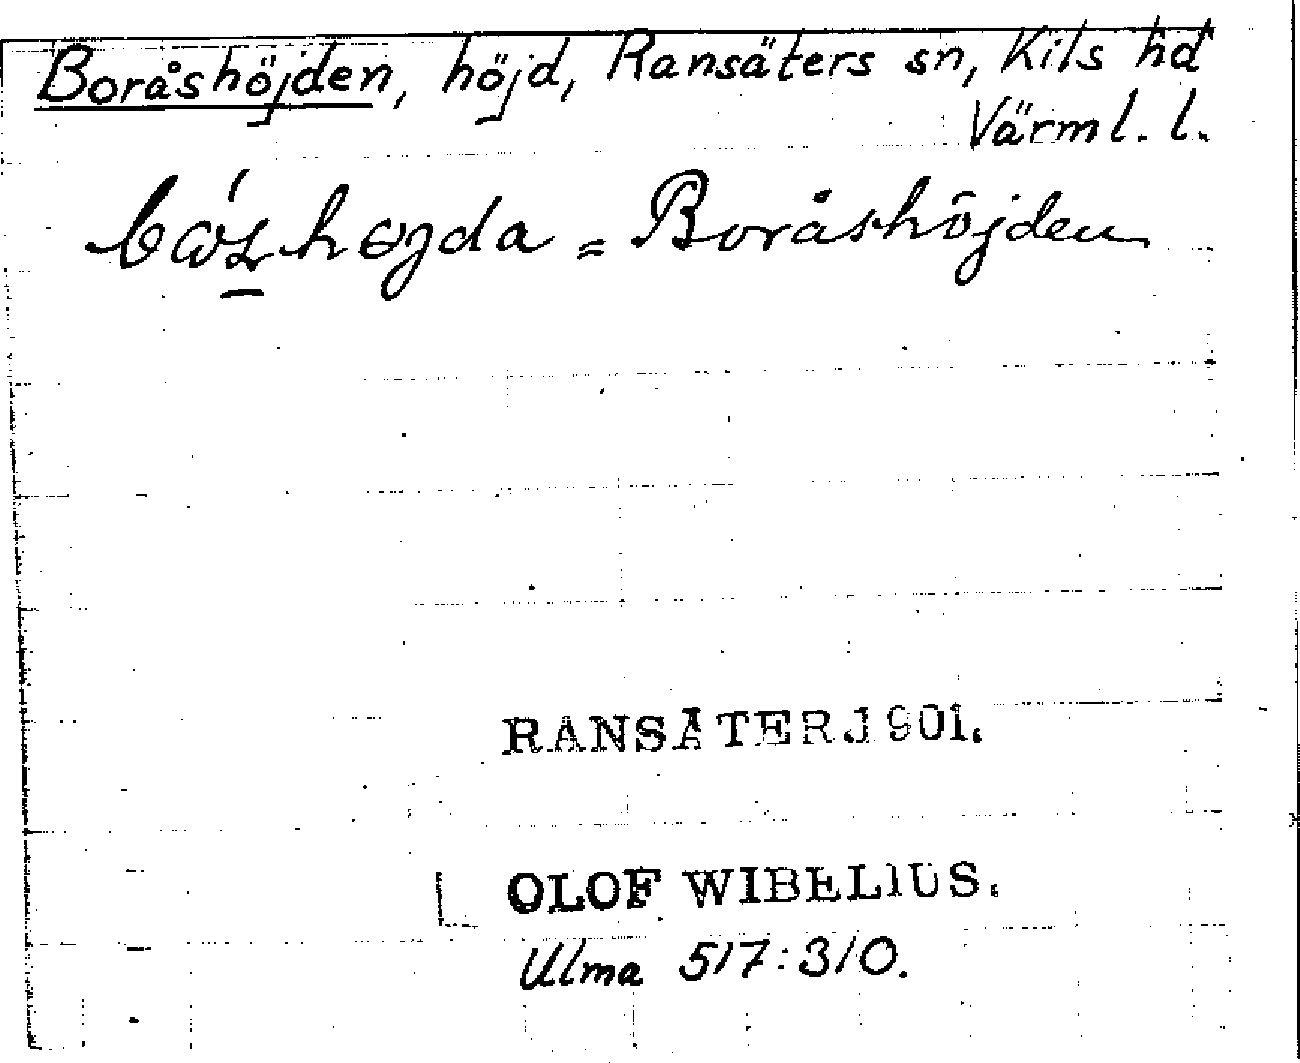 Boråshöjden, höjd, Ransäters sn, Kils hd
Värml. l.
= Boråshöjden
RANSÄTER 1901.
OLOF WIBELIUS.
Ulma 517:310.